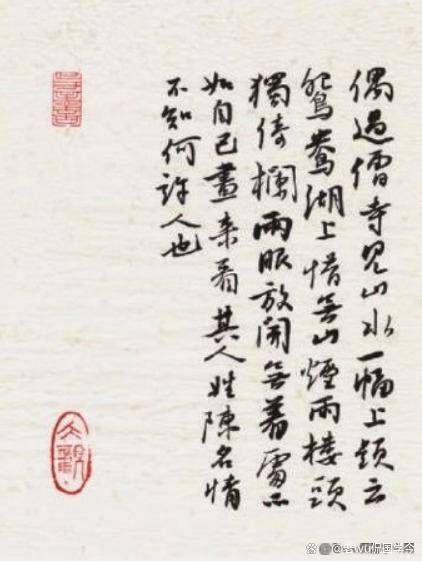 偶過僧寺見山水一幅上題云
鴛鴦湖上惜無山煙雨樓頭
獨倚欄兩眼放開無著處不
如自己畫來看其人姓陳名情
不知何許人也